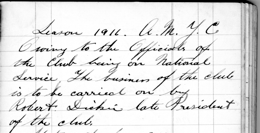 Season 1916. A. M. Y. C
Owing to the Officials of
the Club being on National
Service, The business of the club
is to be carried on by
Robert Dickie late President
of the club.